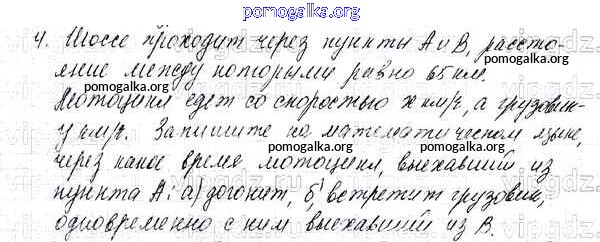 pomogalka.org
4. Шоссе проходит через пункты А и В, расстоя-
яние между которыми равно 65 км.
Мотоцикл едет со скоростью x км/ч, а грузовик-
y км/ч. Запишите на математическом языке,
через какое время мотоцикл, выехавший из
пункта А: а) догонит, б) встретит грузовик,
одновременно с ним выехавший из В.
pomogalka.org
pomogalka.org
pomogalka.org
pomogalka.org